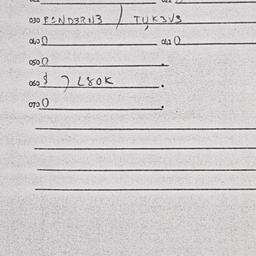 030 F2ND3RN3 / TUK3V3
040 0 041 0
050 0
060 $ 7 L80K
070 0